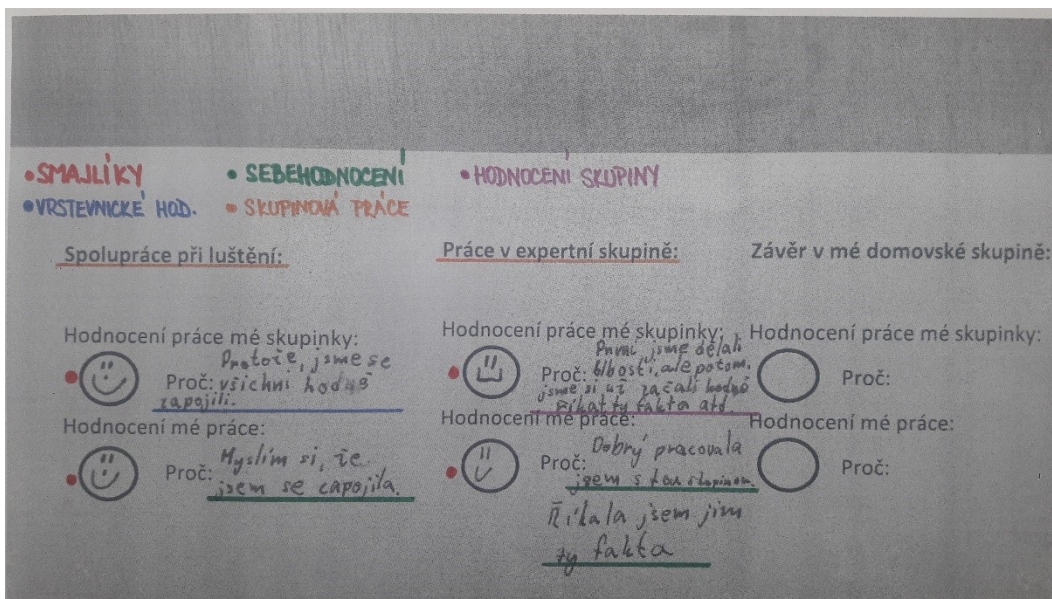 •SMAJLÍKY •SEBEHODNOCENÍ •HODNOCENÍ SKUPINY
•VRSTEVNICKÉ HOD. •SKUPINOVÁ PRÁCE
Spolupráce při luštění:
Hodnocení práce mé skupinky:
Protože, jsme se
Proč: všichni hodně
zapojili.
Hodnocení mé práce:
Myslím si, že
Proč:
jsem se capojila.
Práce v expertní skupině:
Hodnocení práce mé skupinky:
První jsme dělali
Proč: blbosti, ale potom,
jsme si už začali hodně
říkat ty fakta atd.
Hodnocení mé práce:
Dobrý pracovala
Proč:
jsem s tou skupinou.
Říkala jsem jim
ty fakta
Závěr v mé domovské skupině:
Hodnocení práce mé skupinky:
Proč:
Hodnocení mé práce:
Proč: